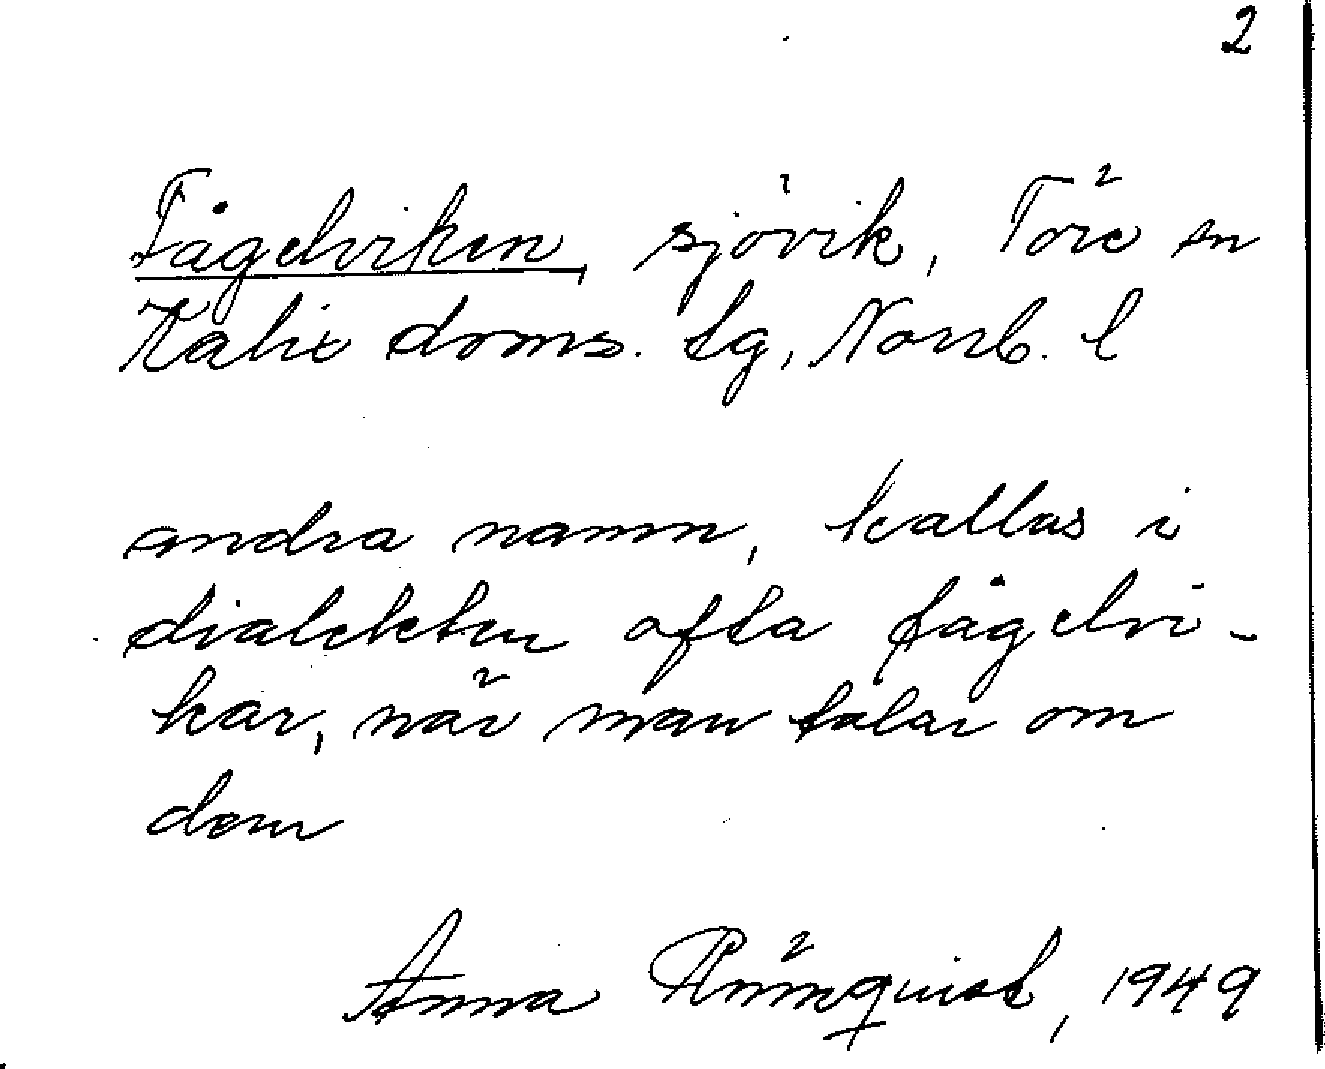 2
Fågelviken, sjövik, Töre sn
Kalix doms. tg, Norrb. l
andra namn, kallas i
dialekten ofta fågelvi-
kar, när man talar om
dem
Anna Rönnquist, 1949